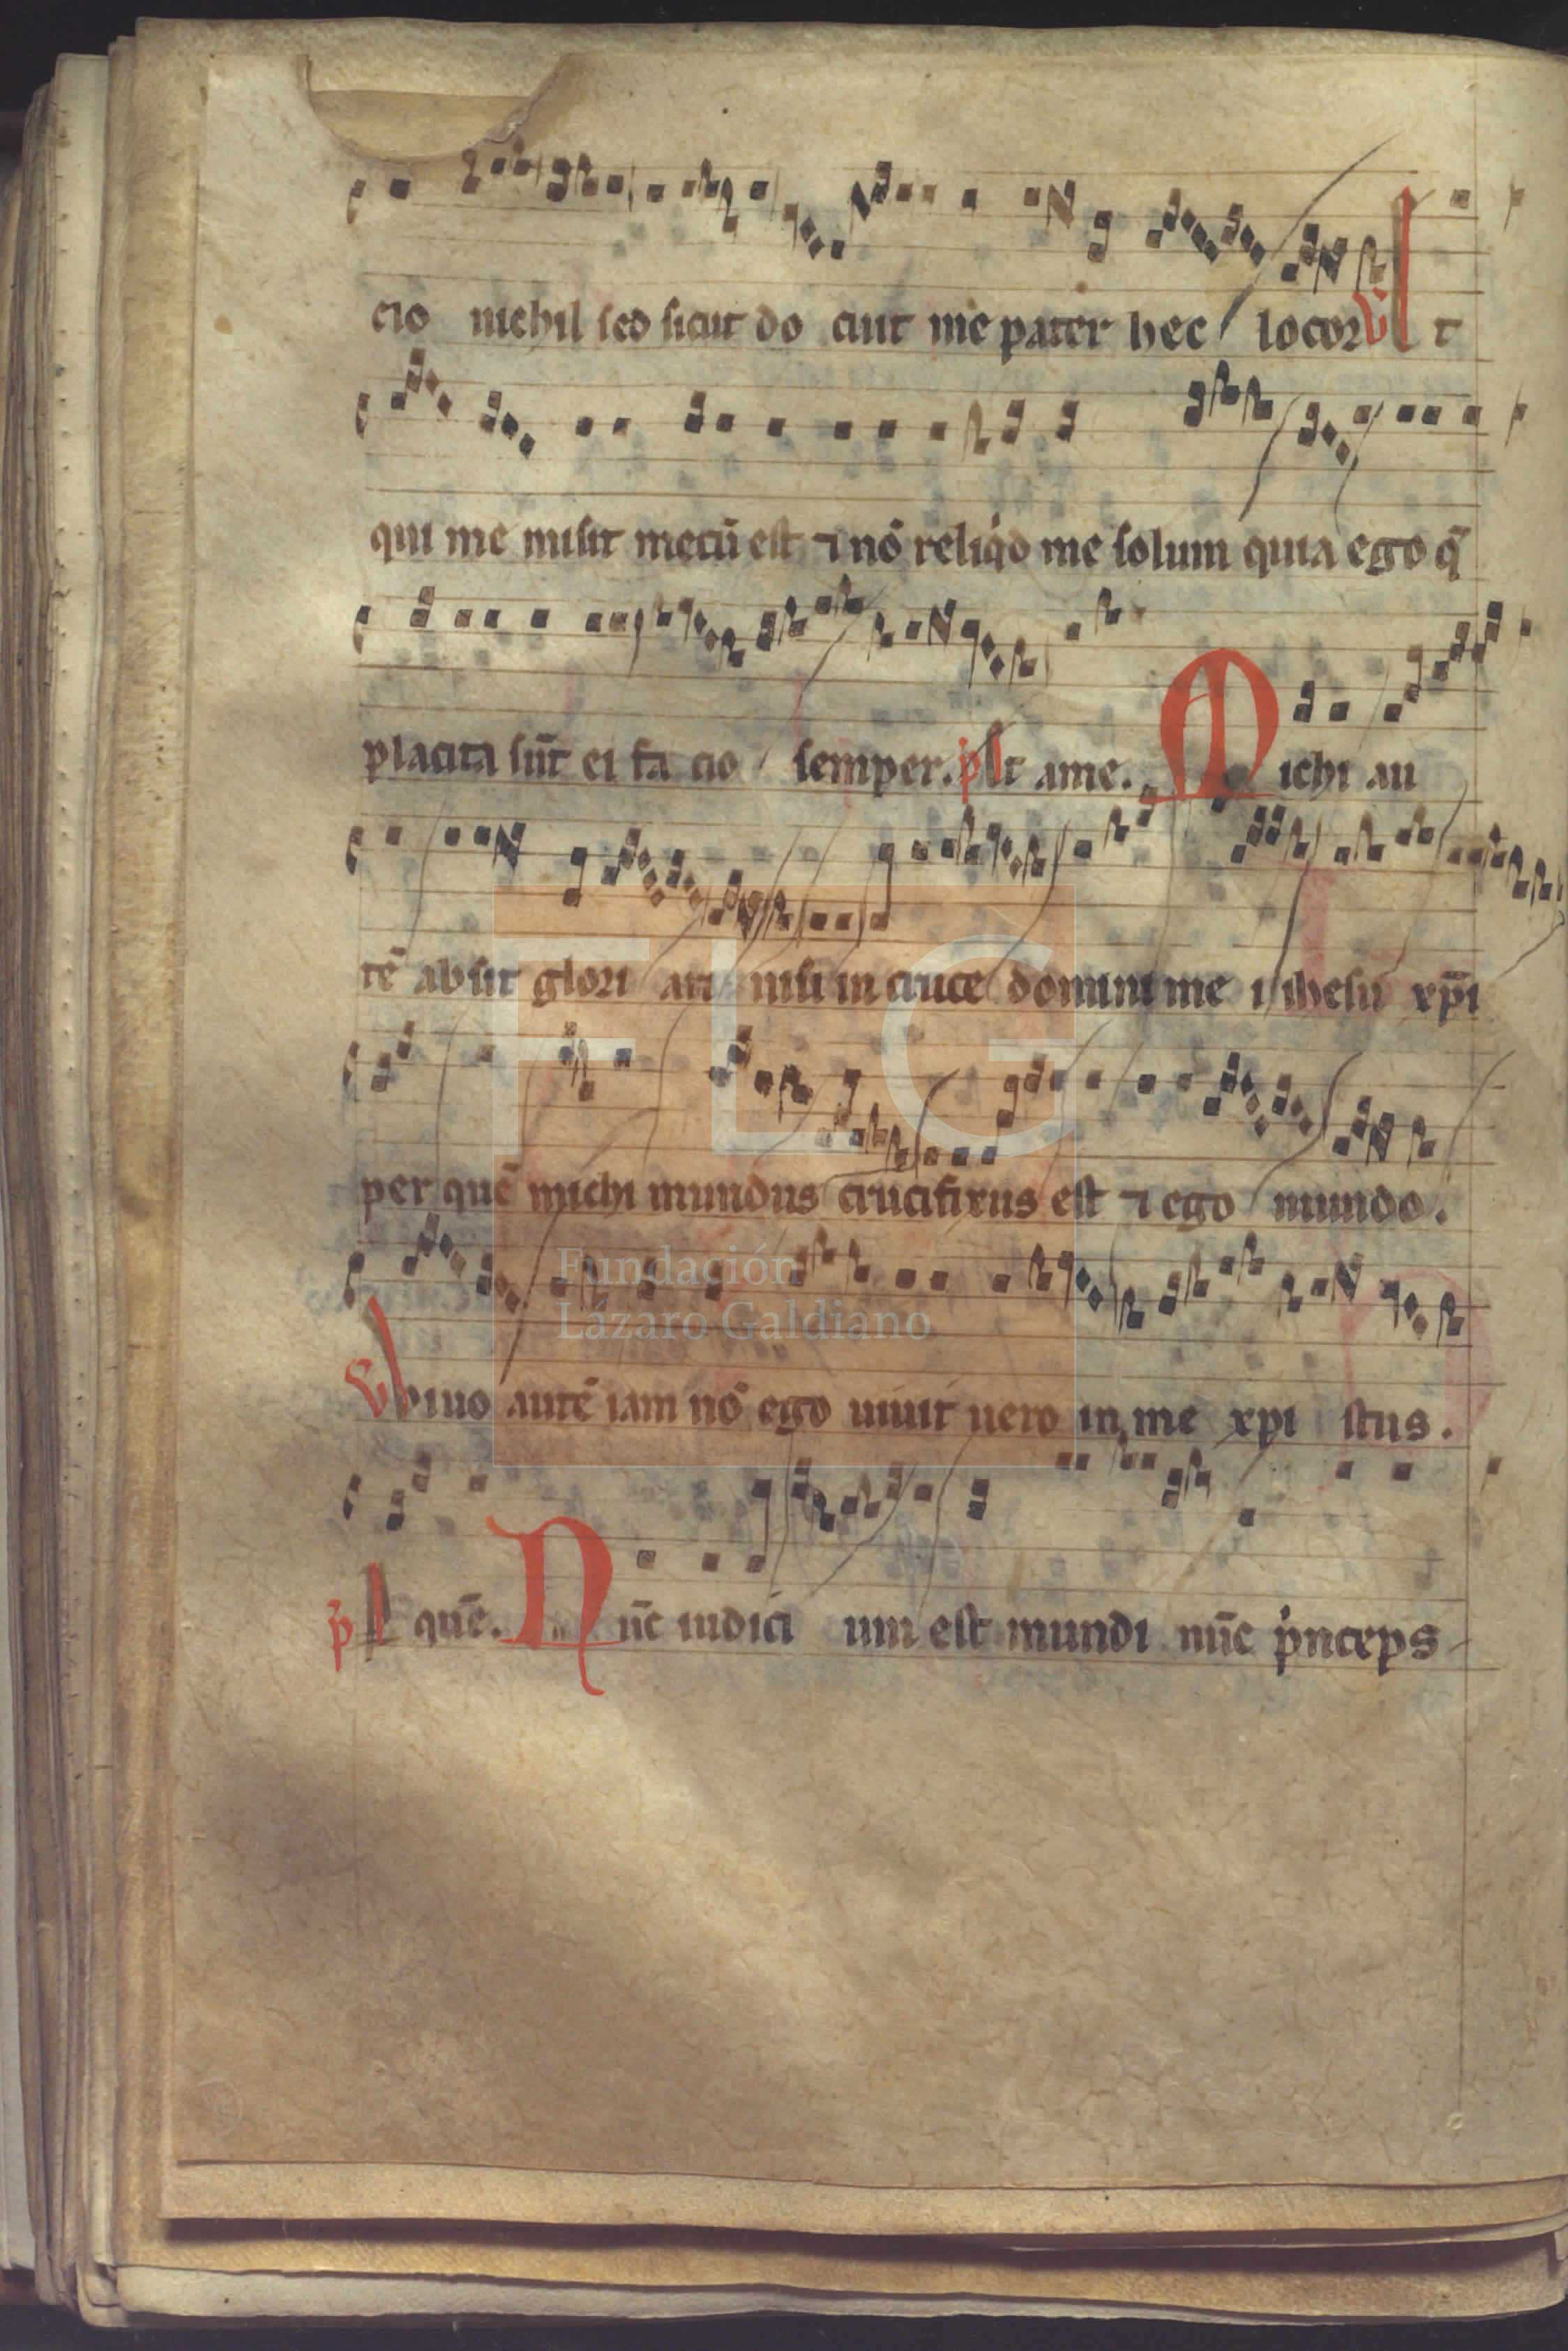 cio nichil sed sicut do cuit me pater hec locor ℣ Et
qui me misit mecū est ⁊ nō reliq̇d me solum quia ego q̄
placita sūt ei fa cio semper. p̄ Et ame. Michi au
tē absit glori ari nisi in cruce domini me i ihesu xp̄i
per quē michi mundus crucifixus est ⁊ ego mundo.
℣ Viuo autē iam nō ego uiuit uero in me xpi stus.
p̄ quē. Nūc iudici um est mundi nūc ṗnceps
FLG
Fundación
Lázaro Galdiano